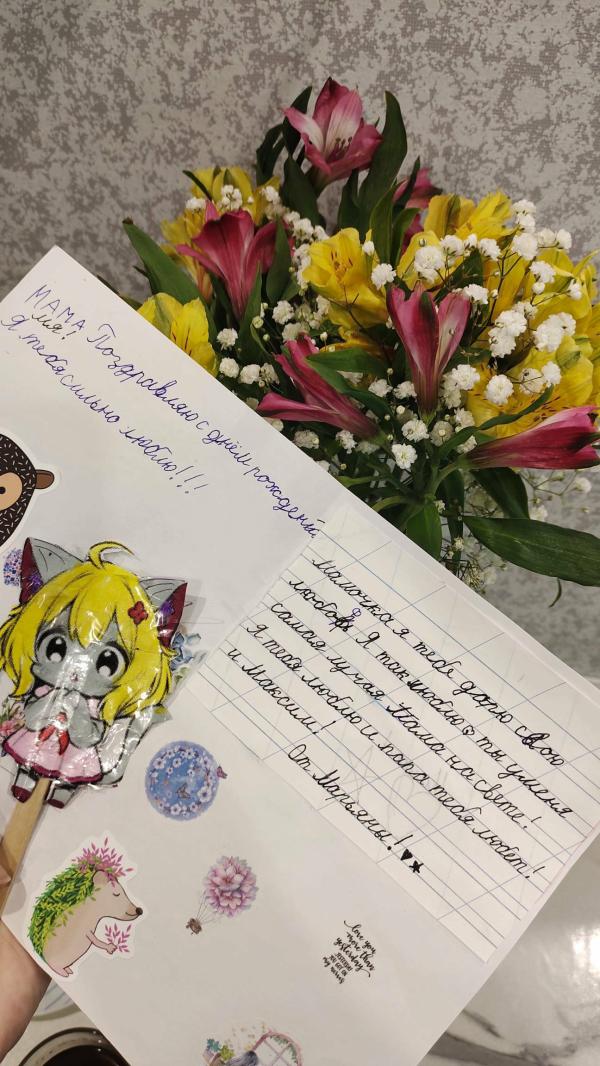 МАМА Поздравляю с днём рождения
мия!
Я тебя сильно люблю!!!
Мамочка я тебе дарю свою
любофь Я так люблю ты у меня
самая лучая мама на свете!
Я тебя люблю и папа тебя любет!
и Максим!
От Марьяны!
love you
more than
yesterday
YESTERDAY
YOU GOT ON
my nerves